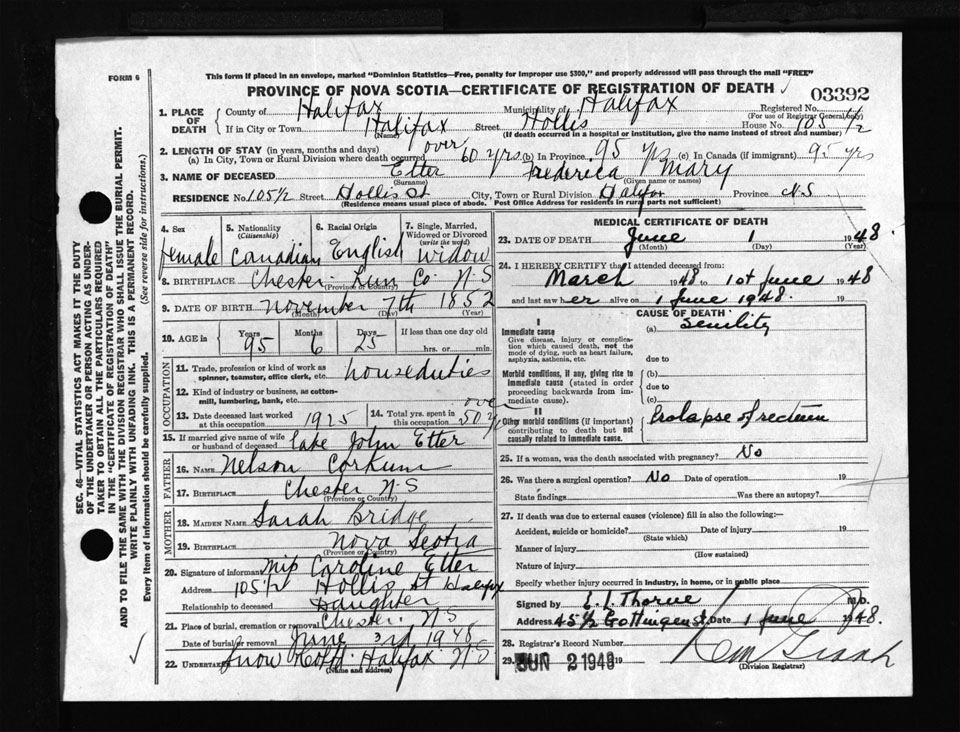 FORM 6
This form if placed in an envelope, marked "Dominion Statistics—Free, penalty for improper use $300," and properly addressed will pass through the mail "FREE"
PROVINCE OF NOVA SCOTIA—CERTIFICATE OF REGISTRATION OF DEATH
03392
1. PLACE OF DEATH
County of Halifax Municipality of Halifax Registered No.
(For use of Registrar General only)
If in City or Town Halifax Street Hollis House No. 105 1/2
(If death occurred in a hospital or institution, give the name instead of street and number)
2. LENGTH OF STAY (in years, months and days)
(a) In City, Town or Rural Division where death occurred over 60 yrs (b) in Province 95 yrs (c) In Canada (if immigrant) 95 yrs
3. NAME OF DECEASED Etter Frederica Mary
(Surname) (Given name or names)
RESIDENCE No. 105 1/2 Street Hollis St City, Town or Rural Division Halifax Province N.S
(Residence means usual place of abode. Post Office Address for residents in rural parts not sufficient)
4. Sex Female
5. Nationality (Citizenship) Canadian
6. Racial Origin English
7. Single, Married, Widowed or Divorced (write the word) Widow
8. BIRTHPLACE Chester Lun Co N-S
(Province or Country)
9. DATE OF BIRTH November 7th 1852
(Month) (Day) (Year)
10. AGE in Years 95 Months 6 Days 25 If less than one day old
hrs. or min.
OCCUPATION
11. Trade, profession or kind of work as spinner, teamster, office clerk, etc. house duties
12. Kind of industry or business, as cotton-mill, lumbering, bank, etc.
13. Date deceased last worked at this occupation 1925
14. Total yrs. spent in this occupation over 50 y
15. If married give name of wife or husband of deceased late John Etter
FATHER
16. NAME Nelson Corkum
17. BIRTHPLACE Chester N-S
(Province or Country)
MOTHER
18. MAIDEN NAME Sarah Bridge
19. BIRTHPLACE Nova Scotia
(Province or Country)
20. Signature of informant Miss Caroline Etter
Address 105 1/2 Hollis St Halifax
Relationship to deceased Daughter
21. Place of burial, cremation or removal Chester N S
Date of burial or removal June 3rd 1948
22. UNDERTAKER Snow Halifax N-S
(Name and address)
MEDICAL CERTIFICATE OF DEATH
23. DATE OF DEATH June 1 1948.
(Month) (Day) (Year)
24. I HEREBY CERTIFY that I attended deceased from:
March 1948 to 1st June 1948
and last saw her alive on 1 June 1948.
CAUSE OF DEATH
I
Immediate cause
Give disease, injury or complication which caused death, not the mode of dying, such as heart failure, asphyxia, asthenia, etc.
(a) Senility
due to
Morbid conditions, if any, giving rise to immediate cause (stated in order proceeding backwards from immediate cause)
(b)
due to
(c)
II
Other morbid conditions (if important) contributing to death but not causally related to immediate cause.
Prolapse of rectum
25. If a woman, was the death associated with pregnancy? No
26. Was there a surgical operation? No Date of operation 19
State findings Was there an autopsy?
27. If death was due to external causes (violence) fill in also the following:—
Accident, suicide or homicide? Date of injury 19
(State which)
Manner of injury
(How sustained)
Nature of injury
Specify whether injury occurred in industry, in home, or in public place
Signed by E. I. Thorne M.D.
Address 45 1/2 Gottingen St. Date 1 June 1948.
28. Registrar's Record Number
29. JUN 2 1948 19
(Division Registrar)
SEC. 46—VITAL STATISTICS ACT MAKES IT THE DUTY
OF THE UNDERTAKER OR PERSON ACTING AS UNDERTAKER TO OBTAIN ALL THE PARTICULARS REQUIRED
IN THE "CERTIFICATE OF REGISTRATION OF DEATH"
AND TO FILE THE SAME WITH THE DIVISION REGISTRAR WHO SHALL ISSUE THE BURIAL PERMIT.
WRITE PLAINLY WITH UNFADING INK. THIS IS A PERMANENT RECORD.
Every item of information should be carefully supplied. (See reverse side for instructions.)